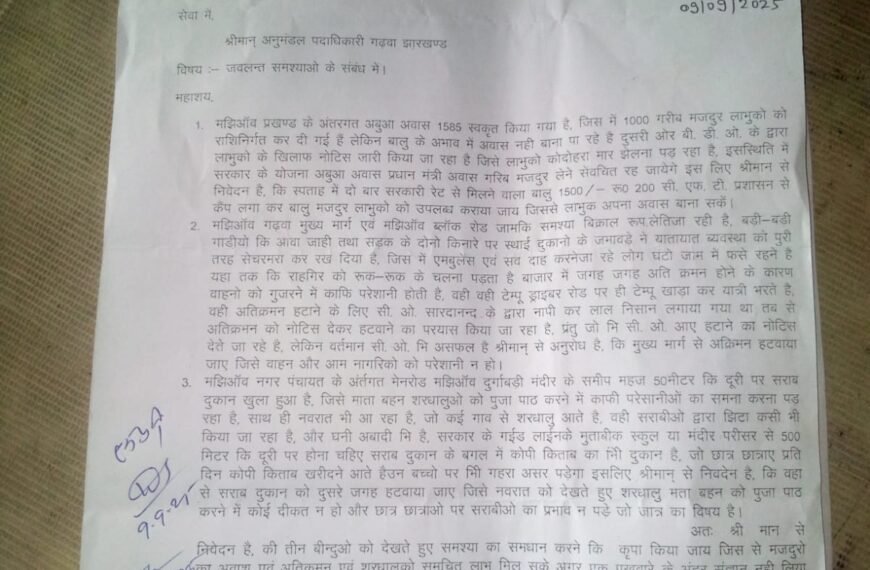 09/09/2025
सेवा में,
श्रीमान् अनुमंडल पदाधिकारी गढ़वा झारखण्ड
विषय :– जवलन्त समश्याओ के संबंध में।
महाशय,
1. मझिऑव प्रखण्ड के अंतरगत अबुआ अवास 1585 स्वकृत किया गया है, जिस में 1000 गरीब मजदुर लाभुको को
राशिनिर्गत कर दी गई हैं लेकिन बालु के अभाव में अवास नही बाना पा रहे है दुसरी ओर बी. डी. ओ. के द्वारा
लाभुको के खिलाफ नोटिस जारी किया जा रहा है जिसे लाभुको कोदोहरा मार झेलना पड़ रहा है, इसस्थिति में
सरकार के योजना अबुआ अवास प्रधान मंत्री अवास गरिब मजदुर लेने सेवंचित रह जायेगे इस लिए श्रीमान से
निवेदन है, कि स्पताह में दो बार सरकारी रेट से मिलने वाला बालु 1500/– रू0 200 सी. एफ. टी. प्रशासन से
कैंप लगा कर बालु मजदुर लाभुको को उपलब्ध कराया जाय जिससे लाभुक अपना अवास बाना सकें।
2. मझिऑव गढ़वा मुख्य मार्ग एवं मझिऑव ब्लॉक रोड जामकि समश्या बिक्राल रूप.लेतिजा रही है, बड़ी–बड़ी
गाडीयो कि आवा जाही तथा सड़क के दोनो किनारे पर स्थाई दुकानो के जमावडे ने यातायात ब्यवस्था को पुरी
तरह सेचरमरा कर रख दिया है, जिस में एमबुलेंस एवं सव दाह करनेजा रहे लोग घंटो जाम में फसे रहने है
यहा तक कि राहगिर को रूक–रूक के चलना पड़ता है बाजार में जगह जगह अति क्रमन होने के कारण
वाहनो को गुजरने में काफि परेशानी होती है, वही वही टेम्पू ड्राइबर रोड पर ही टेम्पू खाड़ा कर यात्री भरते है,
वही अतिक्रमन हटाने के लिए सी. ओ. सारदानन्द के द्वारा नापी कर लाल निसान लगाया गया था तब से
अतिक्रमन को नोटिस देकर हटवाने का परयास किया जा रहा है, प्रंतु जो भि सी. ओ. आए हटाने का नोटिस
देते जा रहे है, लेकिन वर्तमान सी. ओ. भि असफल है श्रीमान् से अनुरोध है, कि मुख्य मार्ग से अक्रिमन हटवाया
जाए जिसे वाहन और आम नागरिको को परेशानी न हो।
3. मझिऑव नगर पंचायत के अंर्तगत मेनरोड मझिऑव दुर्गाबड़ी मंदीर के समीप महज 50मीटर कि दूरी पर सराब
दुकान खुला हुआ है, जिसे माता बहन शरधालुओ को पुजा पाठ करने में काफी परेसानीओं का समना करना पड़
रहा है, साथ ही नवरात भी आ रहा है, जो कई गाव से शरधालु आते है, वही सराबीओ द्वारा झिटा कसी भी
किया जा रहा है, और घनी अबादी भि है, सरकार के गईड लाईनके मुताबीक स्कुल या मंदीर परीसर से 500
मिटर कि दूरी पर होना चहिए सराब दुकान के बगल में कोपी किताब का भिी दुकान है, जो छात्र छात्राए प्रति
दिन कोपी किताब खरीदने आते हैउन बच्चो पर भिी गहरा असर पड़ेगा इसलिए श्रीमान से निवदेन है, कि वहा
से सराब दुकान को दुसरे जगह हटवाया जाए जिसे नवरात को देखते हुए शरधालु माता बहन को पुजा पाठ
करने में कोई दीकत न हो और छात्र छात्राओ पर सराबीओ का प्रभाव न पड़े जो जात्र का विषय है।
अतः श्री मान से
निवेदन है, की तीन बीन्दुओ को देखते हुए समश्या का समधान करने कि कृपा किया जाय जिस से मजदुरो
9.9.25